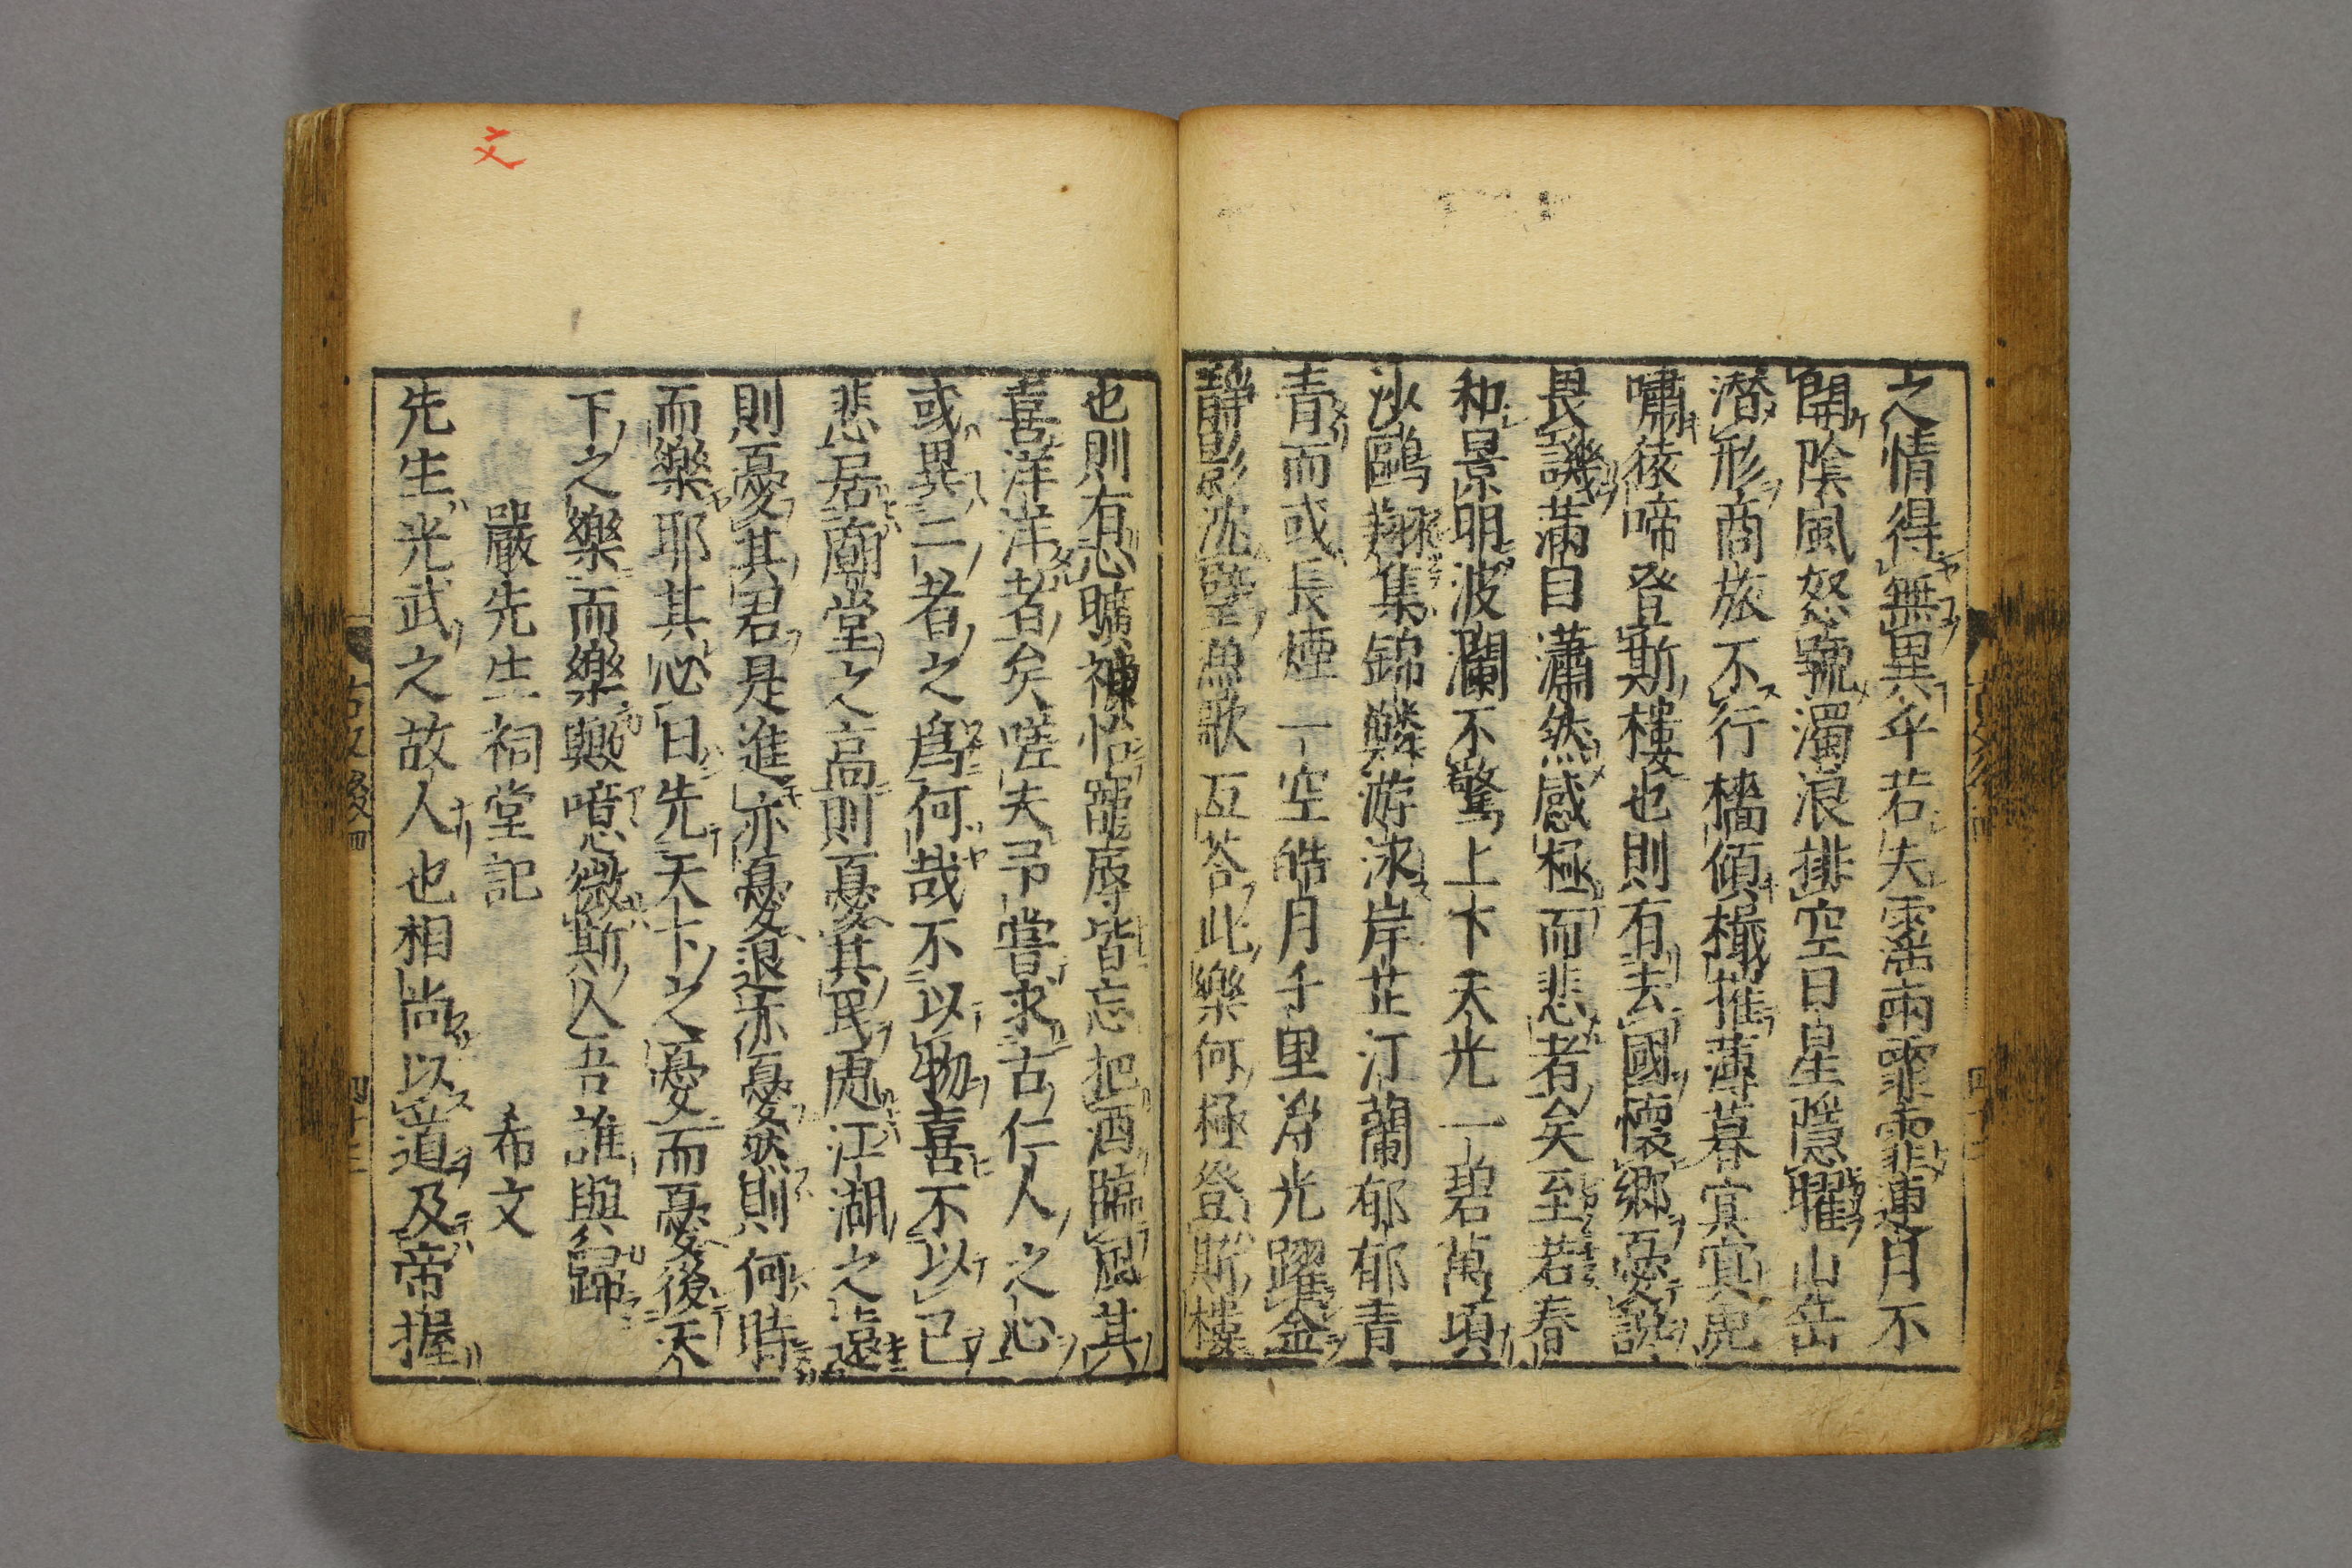 之情得無異乎若夫霪雨霏霏連月不
開陰風怒號濁浪排空日星隱曜山岳
潜形商旅不行檣傾檝摧薄暮冥冥虎
嘯猿啼登斯樓也則有去國懷郷憂讒
畏譏滿目蕭然感極而悲者矣至若春
和景明波瀾不驚上下天光一碧萬頃
沙鷗翔集錦鱗游泳岸芷汀蘭郁郁青
青而或長煙一空皓月千里浮光躍金
靜影沈璧漁歌互荅此樂何極登斯樓
也則有心曠神怡寵辱皆忘把酒臨風其
喜洋洋者矣嗟夫予嘗求古仁人之心
或異二者之爲何哉不以物喜不以己
悲居廟堂之高則憂其民處江湖之遠
則憂其君是進亦憂退亦憂然則何時
而樂耶其必曰先天下之憂而憂後天
下之樂而樂歟噫微斯人吾誰與歸
嚴先生祠堂記 希文
先生光武之故人也相尚以道及帝握
文